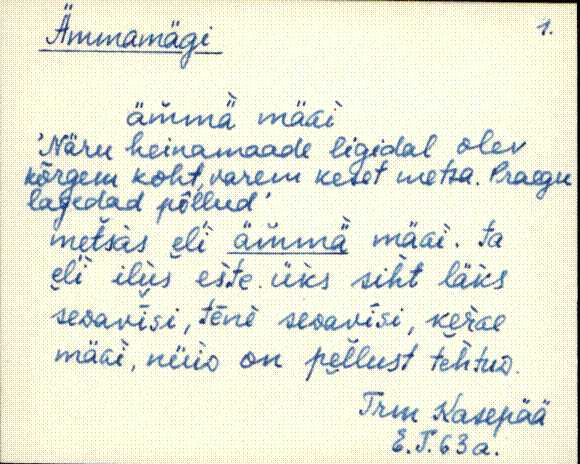 Ämmamägi
1.
äm̆mä mäaì
'Näru heinamaade ligidal olev
kõrgem koht, varem keset metsa. Praegu
lagedad põllud'
metšäs eli äm̆mä mäai. ta
eli ilusešte. üks siht läks
seoavisi, tene seoavisi, kerae
mäai, nüio on pellust tehtuo.
Trm Kasepää
E.T. 63 a.